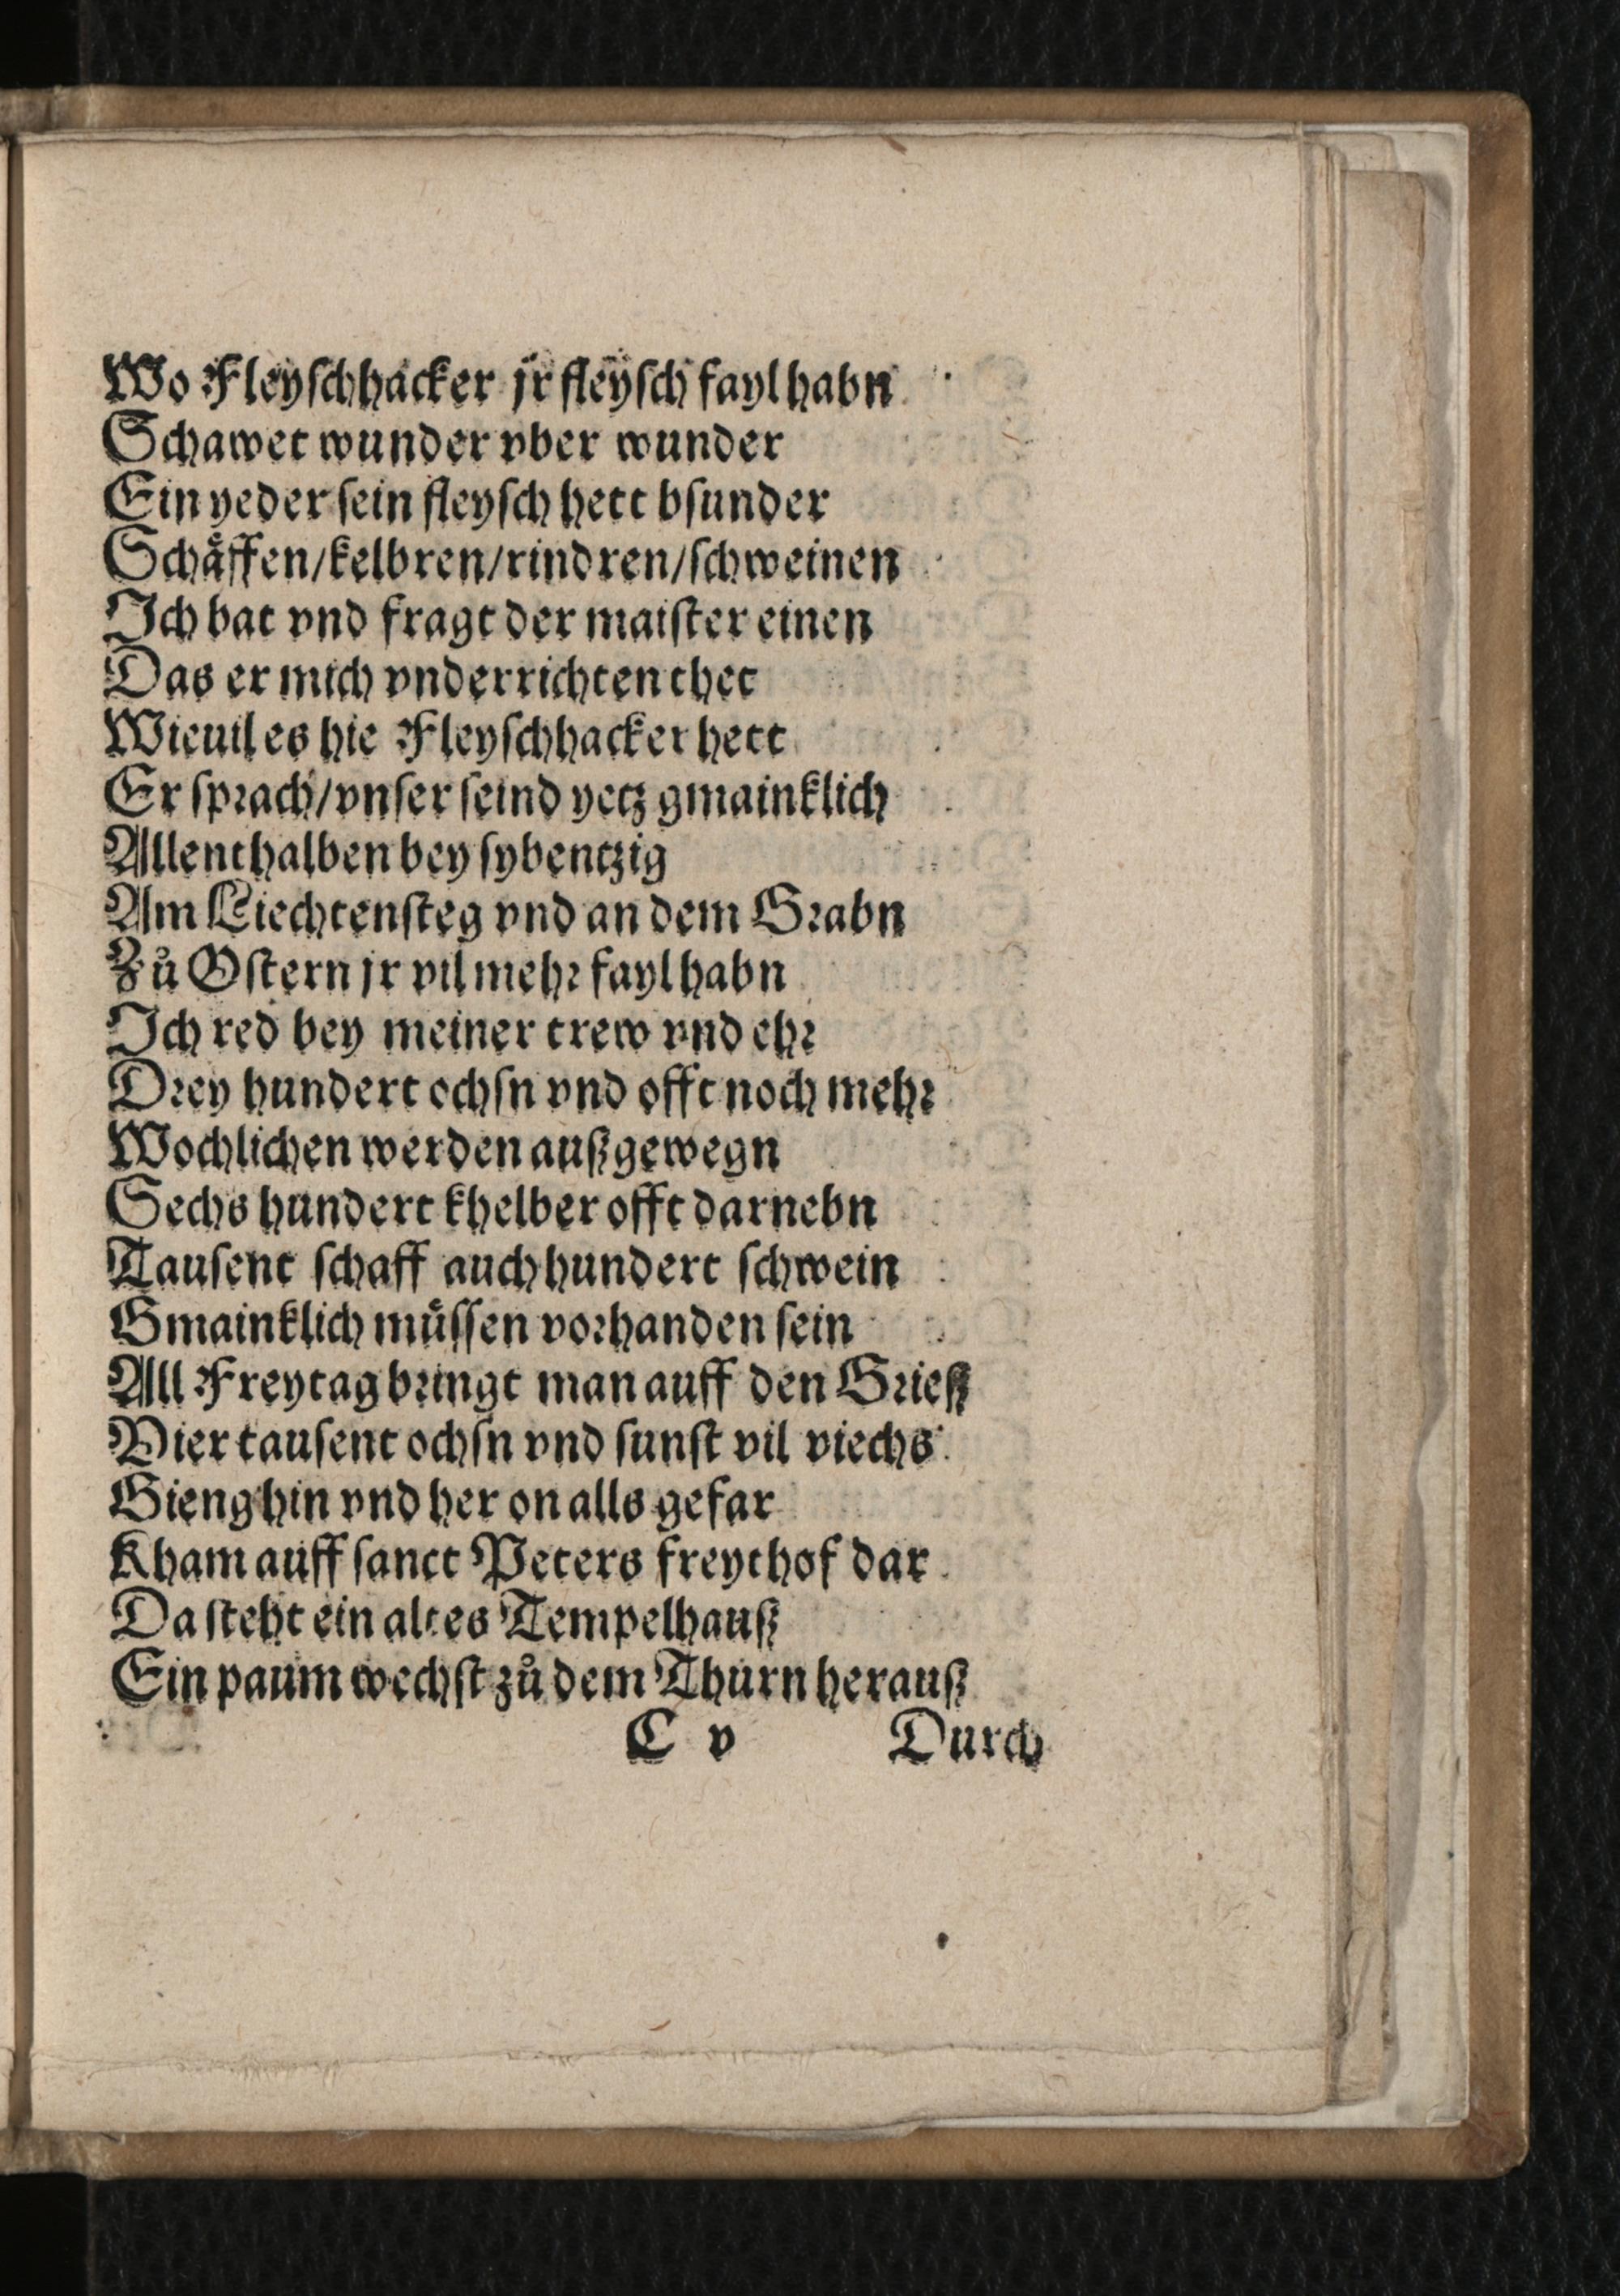 Wo Fleyſchhacker jr fleyſch fayl habn
Schawet wunder vber wunder
Ein yeder ſein fleyſch hett bſunder
Schåffen/kelbren/rindren/ſchweinen
Ich bat vnd fragt der maiſter einen
Das er mich vnderrichten thet
Wieuil es hie Fleyſchhacker hett
Er ſprach/vnſer ſeind yetz gmainklich
Allenthalben bey ſybentzig
Am Liechtenſteg vnd an dem Grabn
Zů Oſtern jr vil mehr fayl habn
Ich red bey meiner trew vnd ehr
Drey hundert ochſn vnd offt noch mehr
Wochlichen werden außgewegn
Sechs hundert khelber offt darnebn
Tauſent ſchaff auch hundert ſchwein
Gmainklich muͤſſen vorhanden ſein
All Freytag bringt man auff den Grieß
Vier tauſent ochſn vnd ſunſt vil viechs
Gieng hin vnd her on alls gefar
Kham auff ſanct Peters freythof dar
Da ſteht ein altes Tempelhauß
Ein paum wechſt zů dem Thurn herauß
C v Durch